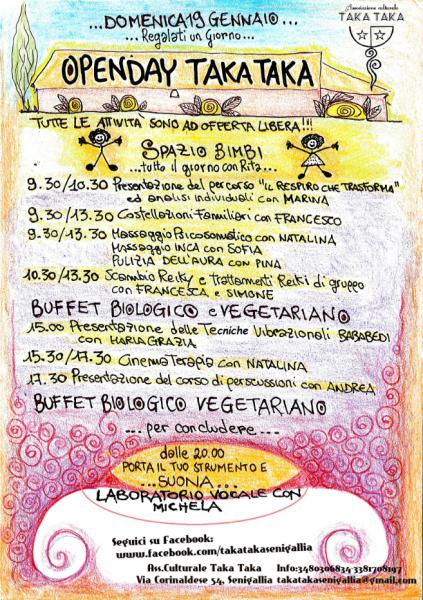 ...DOMENICA 19 GENNAIO...
Associazione culturale
TAKA TAKA
...Regalati un Giorno...
OPENDAY TAKA TAKA
TUTTE LE ATTIVITÀ SONO AD OFFERTA LIBERA!!!
SPAZIO BIMBI
...tutto il giorno con Rita...
9.30/10.30 Presentazione del percorso "IL RESPIRO CHE TRASFORMA"
ed analisi individuali con MARINA
9.30/13.30 Costellazioni Familiari con FRANCESCO
9.30/13.30 Massaggio Psicosomatico con NATALINA
Massaggio INCA con SOFIA
PULIZIA DELL'AURA con PINA
10.30/13.30 Scambio Reiky e Trattamenti Reiki di gruppo
con FRANCESCA e SIMONE
BUFFET BIOLOGICO e VEGETARIANO
15.00 Presentazione delle Tecniche Vibrazionali BABABEDI
con MARIA GRAZIA
15.30/17.30 Cinema Terapia con NATALINA
17.30 Presentazione del corso di percussioni con ANDREA
BUFFET BIOLOGICO VEGETARIANO
...per concludere...
dalle 20.00
PORTA IL TUO STRUMENTO E
...SUONA...
LABORATORIO VOCALE CON
MICHELA
Seguici su Facebook:
www.facebook.com/takatakasenigallia
Ass.Culturale Taka Taka Info:3480306834 3381708197
Via Corinaldese 54, Senigallia takatakasenigallia@gmail.com